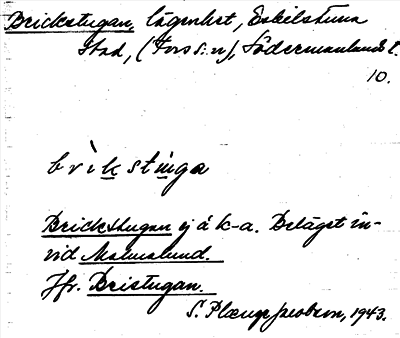 Brickstugan, lägenhet, Eskilstuna
stad, (Fors s:n), Södermanlands l.
10.
brìkstùga
Brickstugan ej å k-a. Beläget in-
vid Malmslund.
Jfr. Bristugan.
S. Plænge Jacobson, 1943.